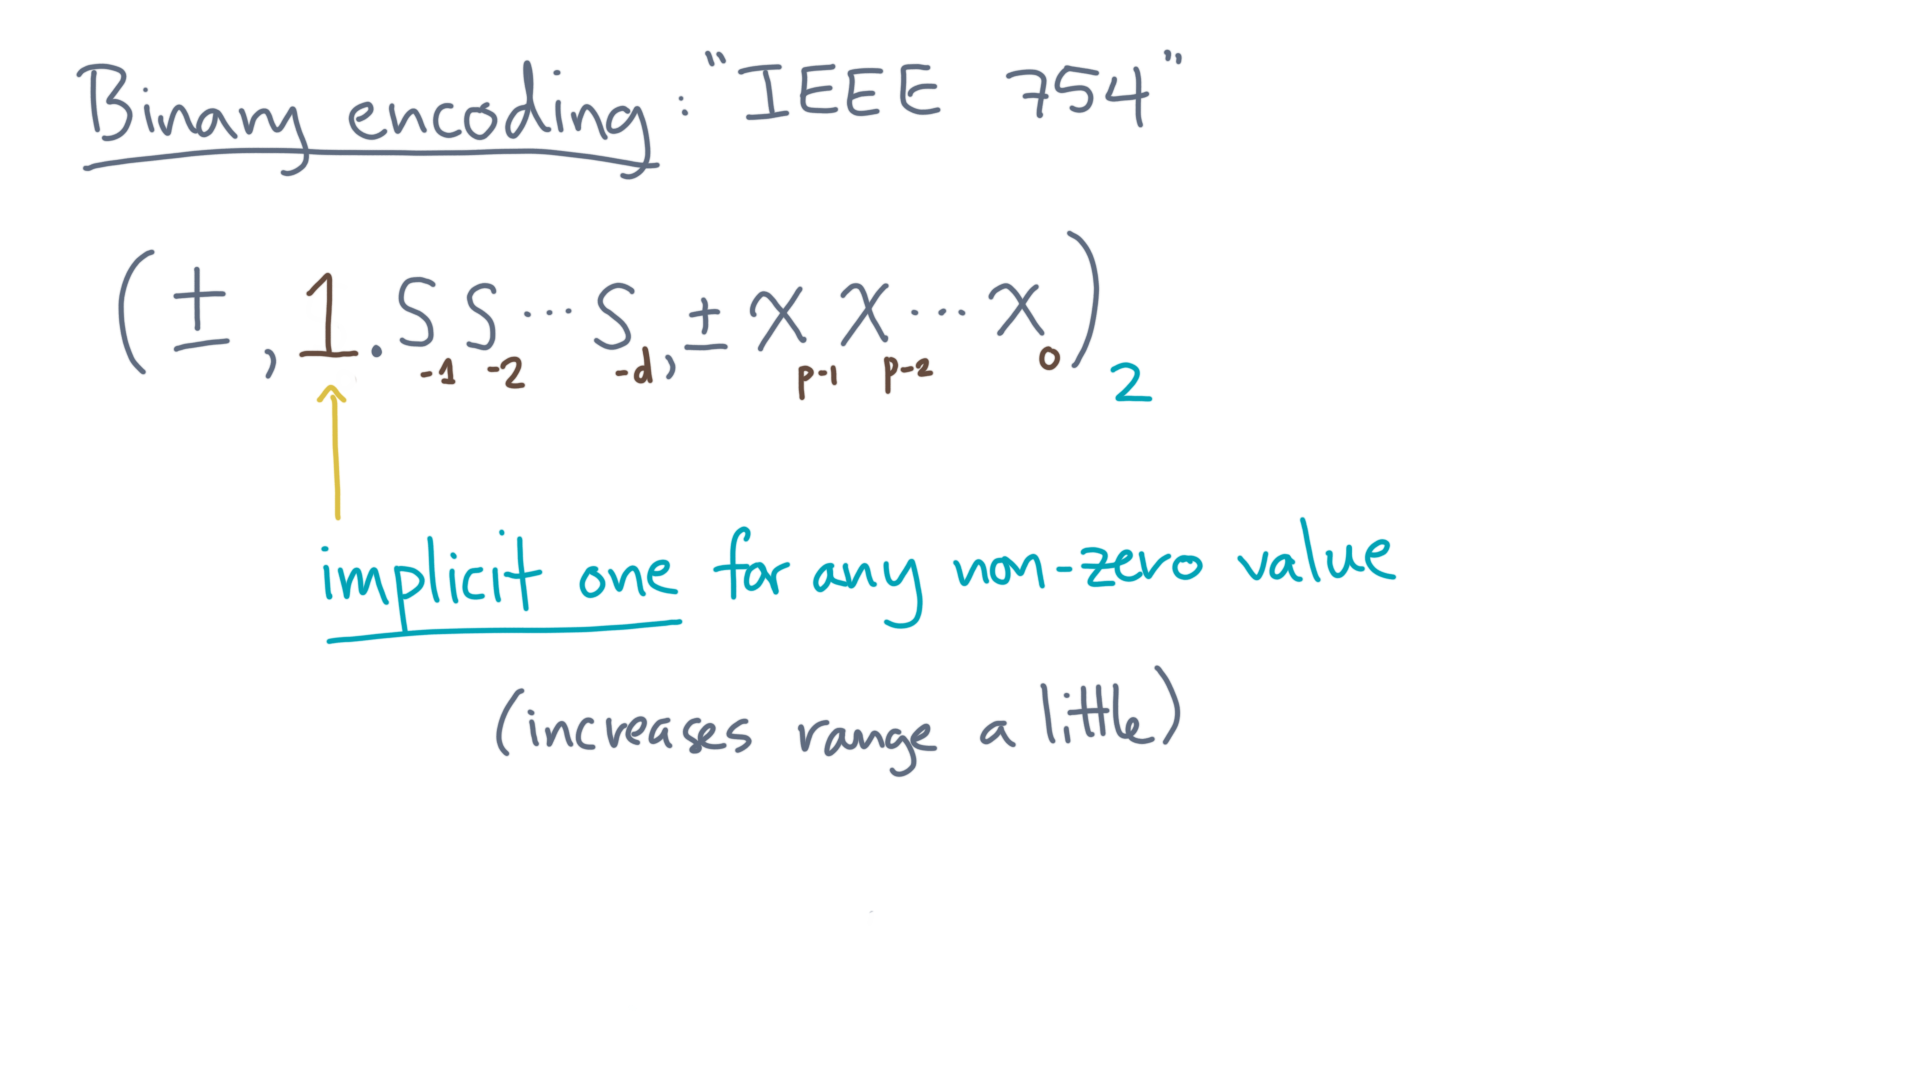 Binary encoding: "IEEE 754"
(±, 1.S₋₁S₋₂···S₋d, ±xₚ₋₁xₚ₋₂···x₀)₂
implicit one for any non-zero value
(increases range a little)